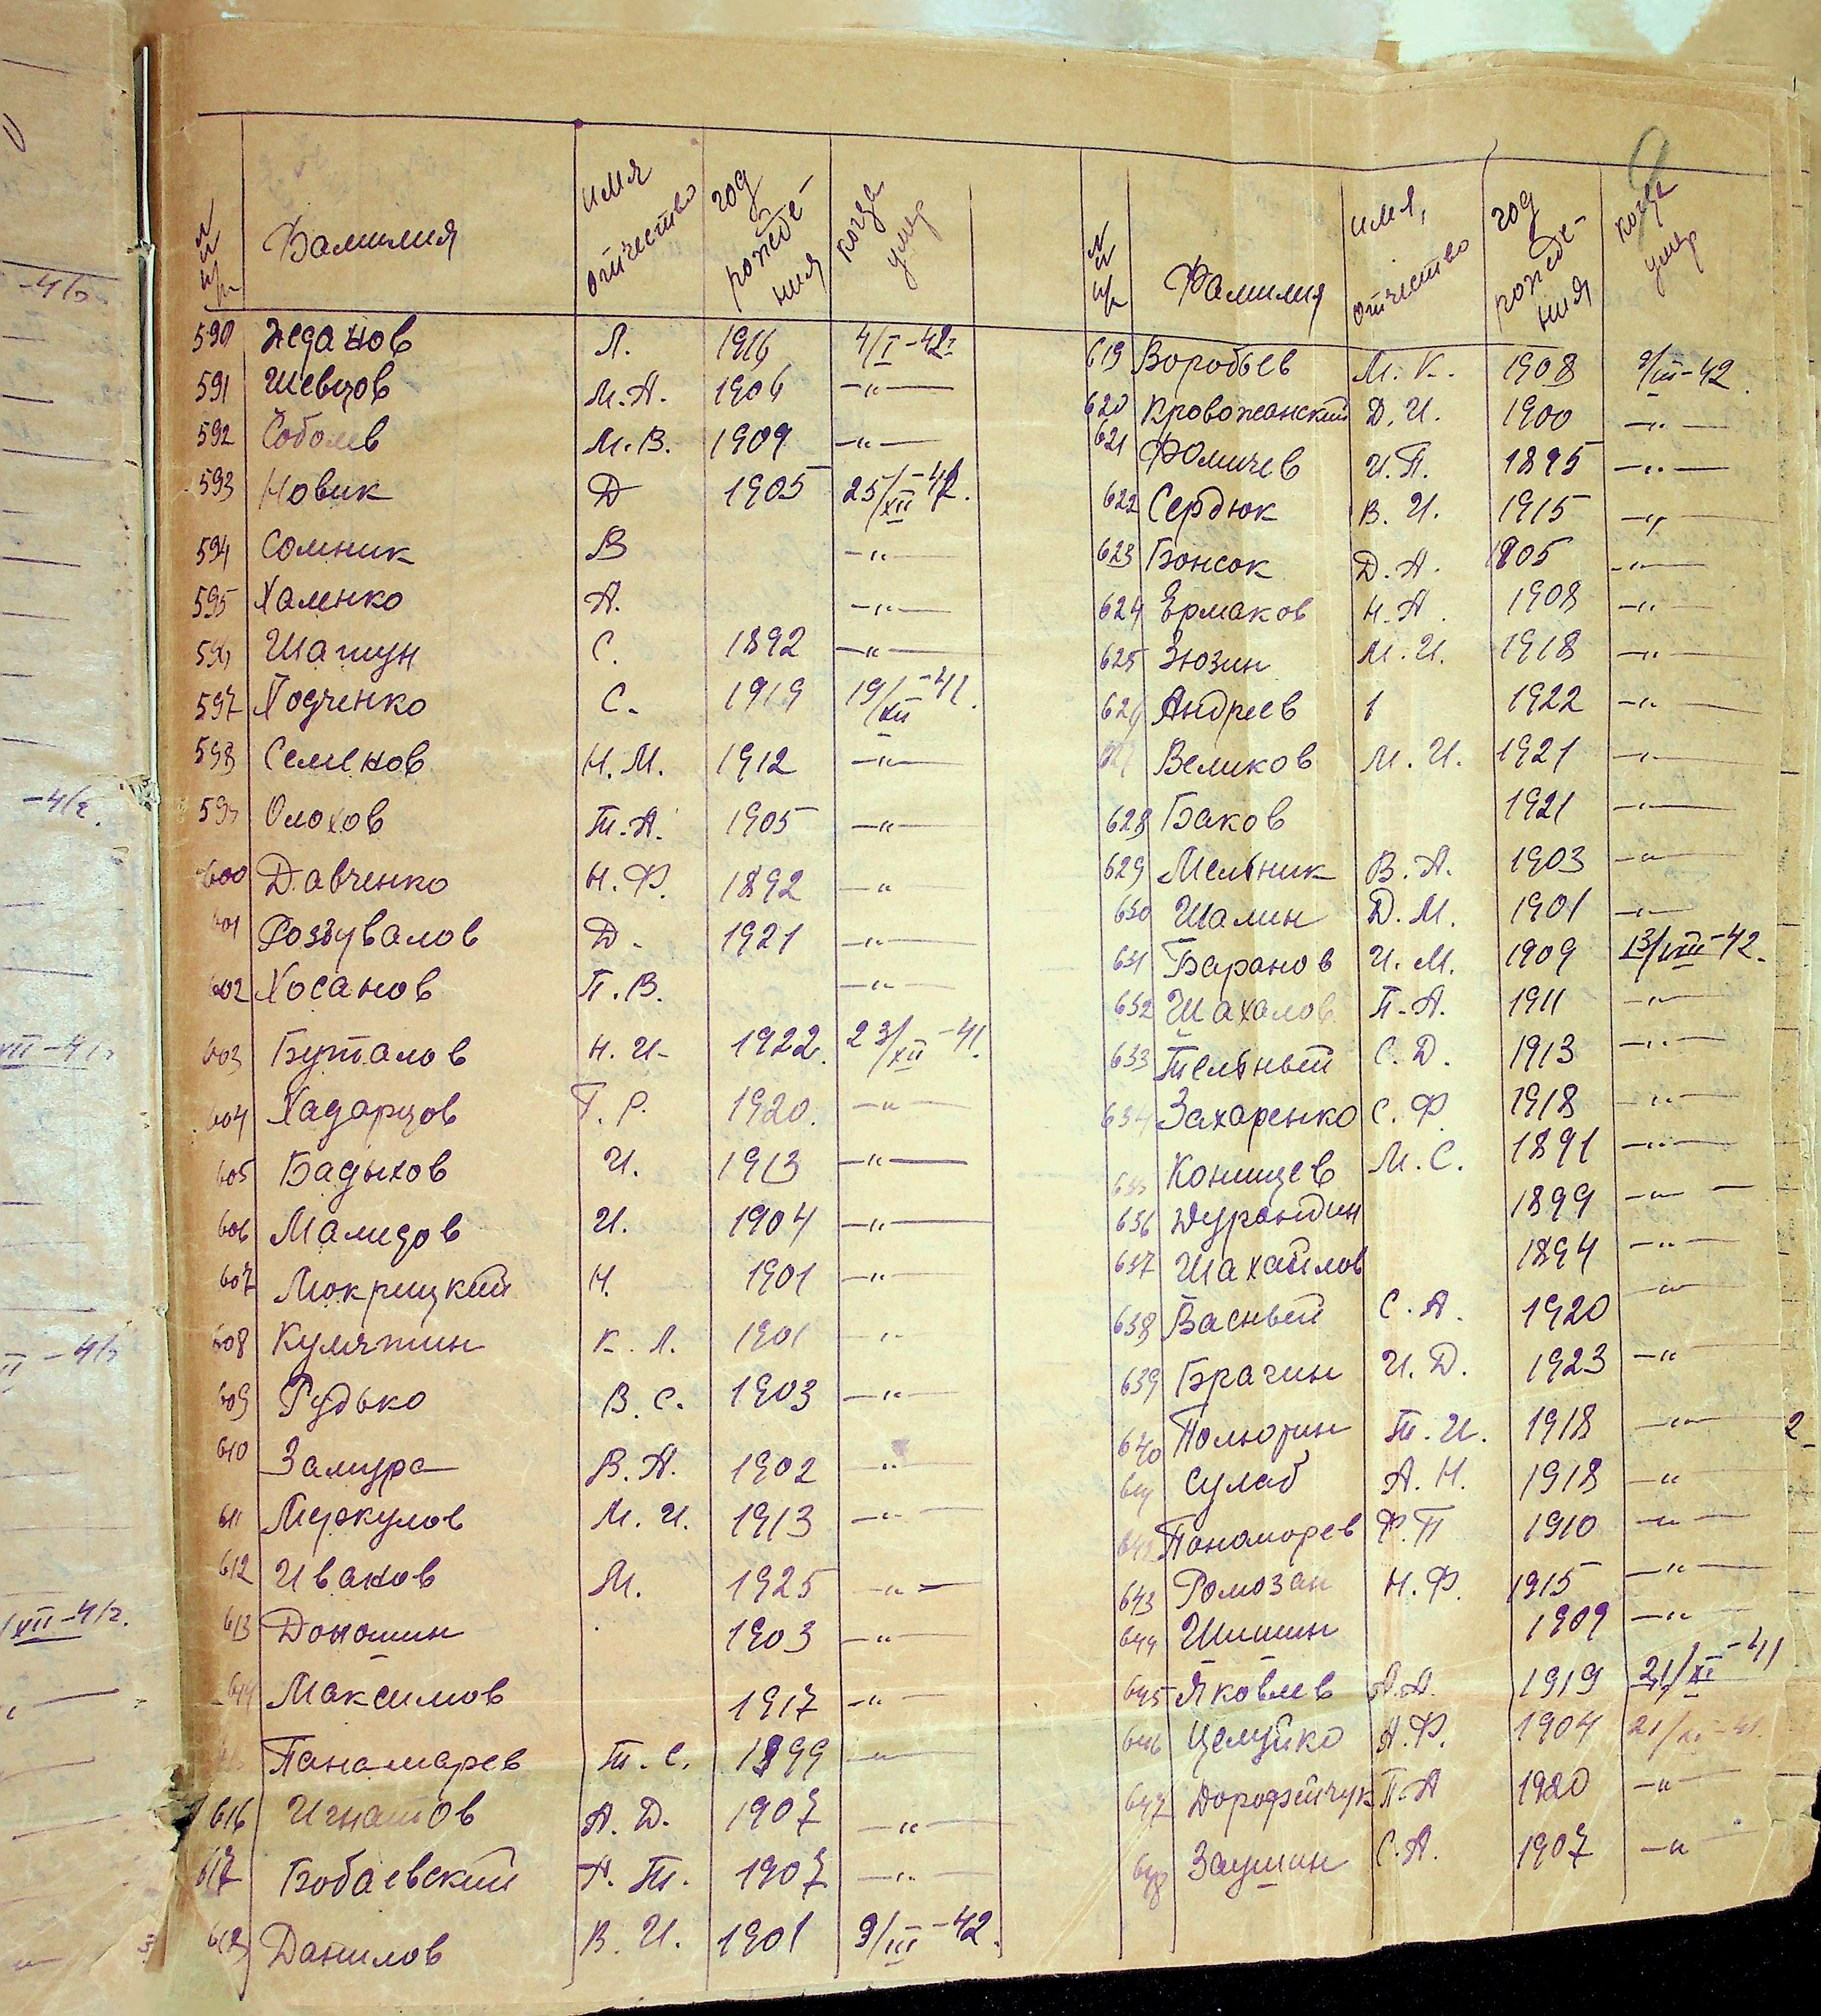 №№ п/п Фамилия имя отчество год рождения когда умер
590 Жеданов Л. 1916 4/I-42г.
591 Шевцов М.А. 1906 —"—
592 Соболев М.В. 1909 —"—
593 Новик Д 1905 25/XII-42.
594 Сомник В —"—
595 Халенко А. —"—
596 Шатун С. 1892 —"—
597 Ходченко С. 1919 19/XII-41.
598 Семенов Н.М. 1912 —"—
599 Олохов Т.А. 1905 —"—
600 Давченко Н.Ф. 1892 —"
601 Роззувалов Д. 1921 —"—
602 Хосанов П.В. —"—
603 Буталов Н.И. 1922. 23/XII-41.
604 Хадарцов Г.Р. 1920. —"—
605 Бадыхов И. 1913 —"—
606 Мамедов И. 1904 —"—
607 Мокрицкий Н. 1901 —"—
608 Кумятин К.Л. 1901 —"—
609 Рудько В.С. 1903 —"—
610 Замура В.А. 1902 —"—
611 Меркулов М.И. 1913 —"—
612 Иванов М. 1925 —"—
613 Доношин 1903 —"—
614 Максимов 1917 —"—
Панамарев Т.С. 1899 —"—
616 Игнатов А.Д. 1907 —"—
617 Бобаевский А.Т. 1907 —"—
618 Данилов В.И. 1901 9/III-42.
№№ п/п Фамилия имя, отчество год рождения когда умер
619 Воробьев М.К. 1908 9/III-42.
620 Кровожанский Д.И. 1900 —"—
621 Фомичев И.П. 1895 —"—
622 Сердюк В.И. 1915 —"—
623 Бонсок Д.А. 1905 —"—
624 Ермаков Н.А. 1908 —"—
625 Зюзин М.И. 1918 —"—
626 Андреев 1 1922 —"—
627 Великов М.И. 1921 —"—
628 Баков 1921 —"—
629 Мельник В.А. 1903 —"—
630 Шалин Д.М. 1901 —"—
631 Баранов И.М. 1909 13/VIII-42.
632 Шахалов П.А. 1911 —"—
633 Тельный С.Д. 1913 —"—
634 Захаренко С.Ф. 1918 —"—
635 Конищев М.С. 1891 —"—
636 Дурандин 1899 —"—
637 Шахайлов 1894 —"—
638 Васный С.А. 1920 —"—
639 Брагин И.Д. 1923 —"—
640 Полюрин Т.И. 1918 —"—
641 Сулаб А.Н. 1918 —"
642 Панаморев Ф.П 1910 —"—
643 Ромозан Н.Ф. 1915 —"—
644 Шишин 1909 —"—
645 Яковлев А.А. 1919 21/XI-41
646 Целуйко А.Ф. 1904 21/XI-41.
647 Дорофейчук П.А 1920 —"—
648 Заушин С.А. 1907 —"